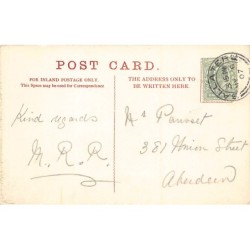 POST CARD.
FOR INLAND POSTAGE ONLY.
This Space may be used for Correspondence
THE ADDRESS ONLY TO
BE WRITTEN HERE.
Kind regards
M. R. R.
381 Union Street
Aberdeen